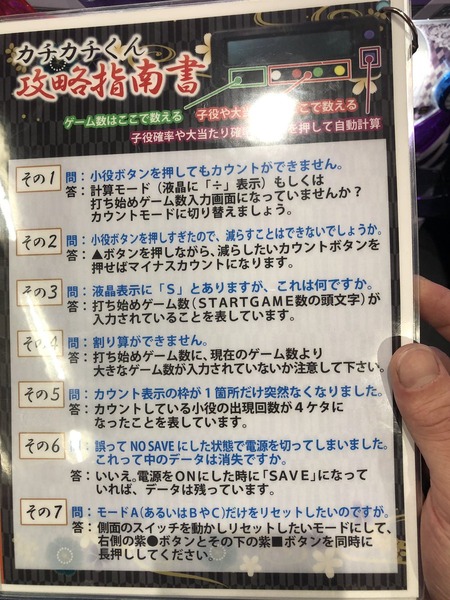 カチカチくん
攻略指南書
ゲーム数はここで数える
子役や大当 ここで数える
子役確率や大当たり確 を押して自動計算
その1
問：小役ボタンを押してもカウントができません。
答：計算モード（液晶に「÷」表示）もしくは
打ち始めゲーム数入力画面になっていませんか？
カウントモードに切り替えましょう。
その2
問：小役ボタンを押しすぎたので、減らすことはできないでしょうか。
答：▲ボタンを押しながら、減らしたいカウントボタンを
押せばマイナスカウントになります。
その3
問：液晶表示に「S」とありますが、これは何ですか。
答：打ち始めゲーム数（STARTGAME数の頭文字）が
入力されていることを表しています。
その4
問：割り算ができません。
答：打ち始めゲーム数に、現在のゲーム数より
大きなゲーム数が入力されていないか注意して下さい。
その5
問：カウント表示の枠が1箇所だけ突然なくなりました。
答：カウントしている小役の出現回数が4ケタに
なったことを表しています。
その6
誤ってNO SAVEにした状態で電源を切ってしまいました。
これって中のデータは消失ですか。
答：いいえ。電源をONにした時に「SAVE」になって
いれば、データは残っています。
その7
問：モードA（あるいはBやC）だけをリセットしたいのですが。
答：側面のスイッチを動かしリセットしたいモードにして、
右側の紫●ボタンとその下の紫■ボタンを同時に
長押ししてください。